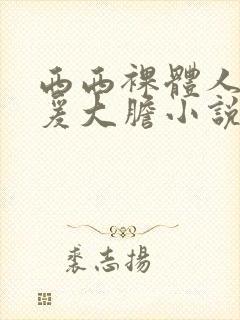 西西裸體人
爰大膽小說
裘志揚